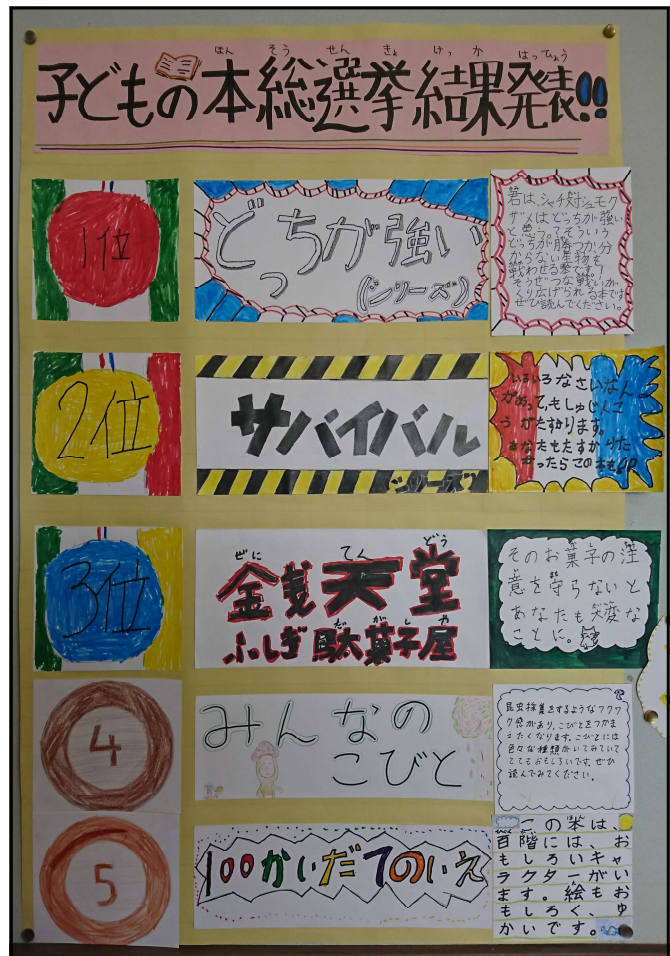 ほん そう せん きょ けっ か はっぴょう
子どもの本総選挙結果発表!!
1位
どっちが強い
(シリーズ)
君は、シャチ対シュモク
ザメはどっちが強い
と思う。そういう
どっちが勝つか分
からない生物を
戦わせる本です!
そうぜつな戦いが
くり広げられる本です
ぜひ読んでください。
2位
サバイバル
シリーズ
いろいろなさいなん
があっても、しゅじんこ
うがたすかります。
あなたもたすかりた
かったらこの本を
3位
ぜに てん どう
金銭天堂
だ がし や
ふしぎ駄菓子屋
そのお菓子の注
意を守らないと
あなたも大変な
ことに。
4
みんなの
こびと
昆虫採集をするようなワクワ
ク感があり、こびとをつかま
えたくなります。こびとには
色々な種類がいてみていて
とてもおもしろいです。ぜひ
読んでみてください。
5
100かいだてのいえ
この本は、
百階には、お
もしろいキャ
ラクターがい
ます。絵もお
もしろく、ゆ
かいです。